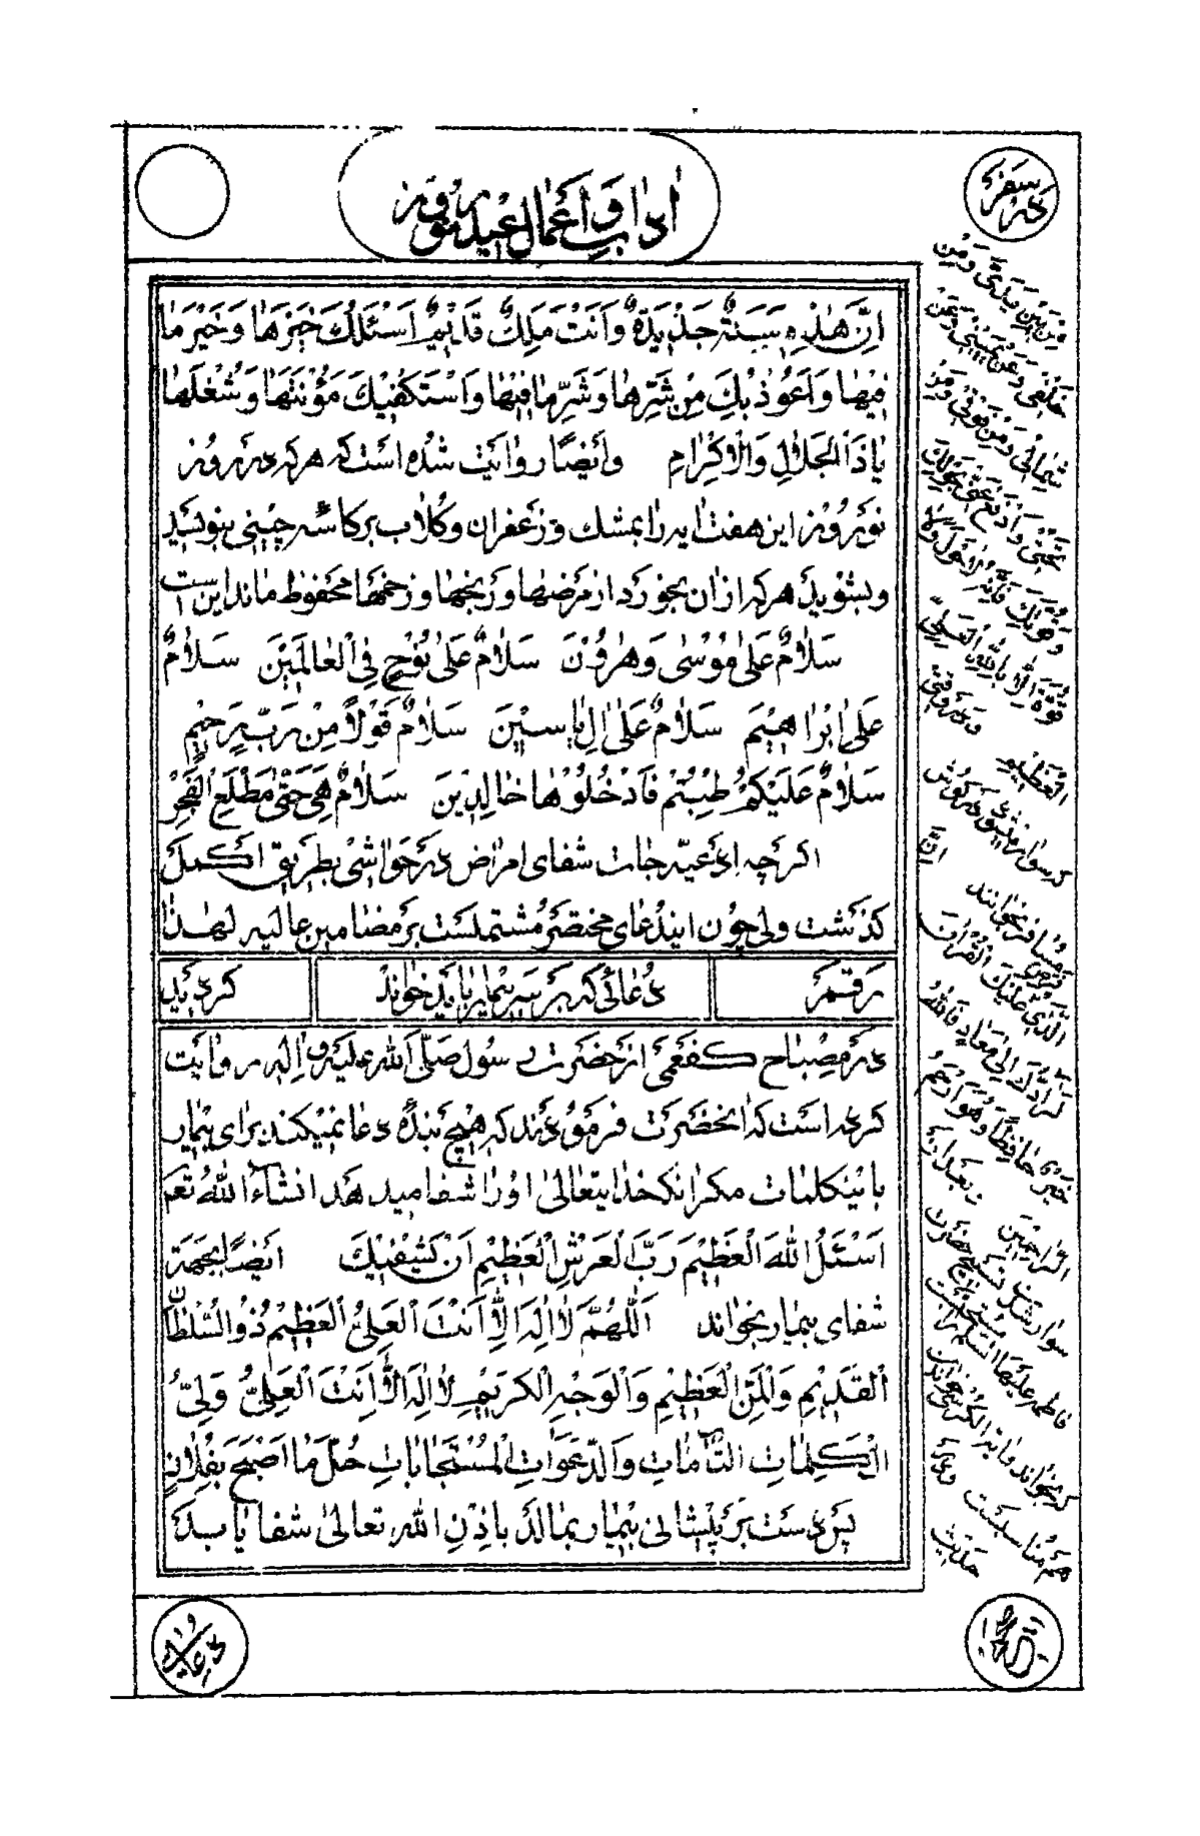 اداب و اعمال عید نوروز
در سفر
اِنَّ هٰذِهِ سَنَةٌ جَدیدَةٌ وَ اَنْتَ مَلِكٌ قَدیمٌ اَسْئَلُكَ خَیْرَهٰا وَ خَیْرَ مٰا
فیهٰا وَ اَعُوذُ بِكَ مِنْ شَرِّهٰا وَ شَرِّ مٰا فیهٰا وَ اَسْتَكْفیكَ مَؤُنَتَهٰا وَ شُغْلَهٰا
یٰا ذَا الْجَلٰالِ وَ الْاِكْرٰامِ وایضًا روایت شده است که هر که در روز
نوروز این هفت ایه را بمشك و زعفران و کلاب بر کاسه چینی بنویسید
وبشوید هر که از ان بخورد از مرضها و رنجها و زخمها محفوظ ماند این است
سَلٰامٌ عَلیٰ مُوسٰی وَ هٰرُونَ سَلٰامٌ عَلیٰ نُوحٍ فِی الْعٰالَمینَ سَلٰامٌ
عَلیٰ اِبْرٰاهیمَ سَلٰامٌ عَلیٰ اِلْ یٰاسینَ سَلٰامٌ قَوْلًا مِنْ رَبٍّ رَحیمٍ
سَلٰامٌ عَلَیْكُمْ طِبْتُمْ فَادْخُلُوهٰا خٰالِدینَ سَلٰامٌ هِیَ حَتّیٰ مَطْلَعِ الْفَجْرِ
اکرچه ادعیه جات شفای امراض در حواشی بطریق اکمل
کذشت ولی چون ایندعای مختصر مشتملست بر مضامین عالیه لهذا
رقم دعائی که بر سر بیمار باید خواند کردید
در مصباح کفعمی از حضرت رسول صَلَّی اللّٰه علیه و اله روایت
کرده است که انحضرت فرمودند که هیچ بنده دعا نمیکند برای بیمار
باینکلمات مکر انکه خدایتعالی او را شفا میدهد انشاء اللّٰه تعم
اَسْئَلُ اللّٰهَ الْعَظیمَ رَبَّ الْعَرْشِ الْعَظیمِ اَنْ یَشْفِیَكَ ایضًا بجهة
شفای بیمار بخواند اَللّٰهُمَّ لٰا اِلٰهَ اِلّٰا اَنْتَ الْعَلِیُّ الْعَظیمُ ذُو السُّلْطٰانِ
الْقَدیمِ وَ الْمَنِّ الْعَظیمِ وَ الْوَجْهِ الْكَریمِ لٰا اِلٰهَ اِلّٰا اَنْتَ الْعَلِیُّ وَلِیُّ
الْكَلِمٰاتِ التّٰامّٰاتِ وَ الدَّعَوٰاتِ الْمُسْتَجٰابٰاتِ حُلَّ مٰا اَصْبَحَ بِفُلٰانٍ
پس دست بر پیشانی بیمار بمالد باذن اللّٰه تعالی شفا یابد
مِنْ بَیْنِ یَدَیَّ وَ مِنْ
خَلْفی وَ عَنْ یَمینی وَ عَنْ
شِمٰالی وَ مِنْ فَوْقی وَ مِنْ
تَحْتی
قُوَّةَ اِلّٰا بِاللّٰهِ الْعَلِیِّ
الْعَظیمِ
الَّذی فَرَضَ عَلَیْكَ الْقُرْاٰنَ
لَرٰادُّكَ اِلیٰ مَعٰادٍ فَاللّٰهُ
خَیْرٌ حٰافِظًا وَ هُوَ اَرْحَمُ
الرّٰاحِمینَ و بعد از
سوار شدن تسبیح حضرت
فاطمه علیها السلم
هم مناسبست